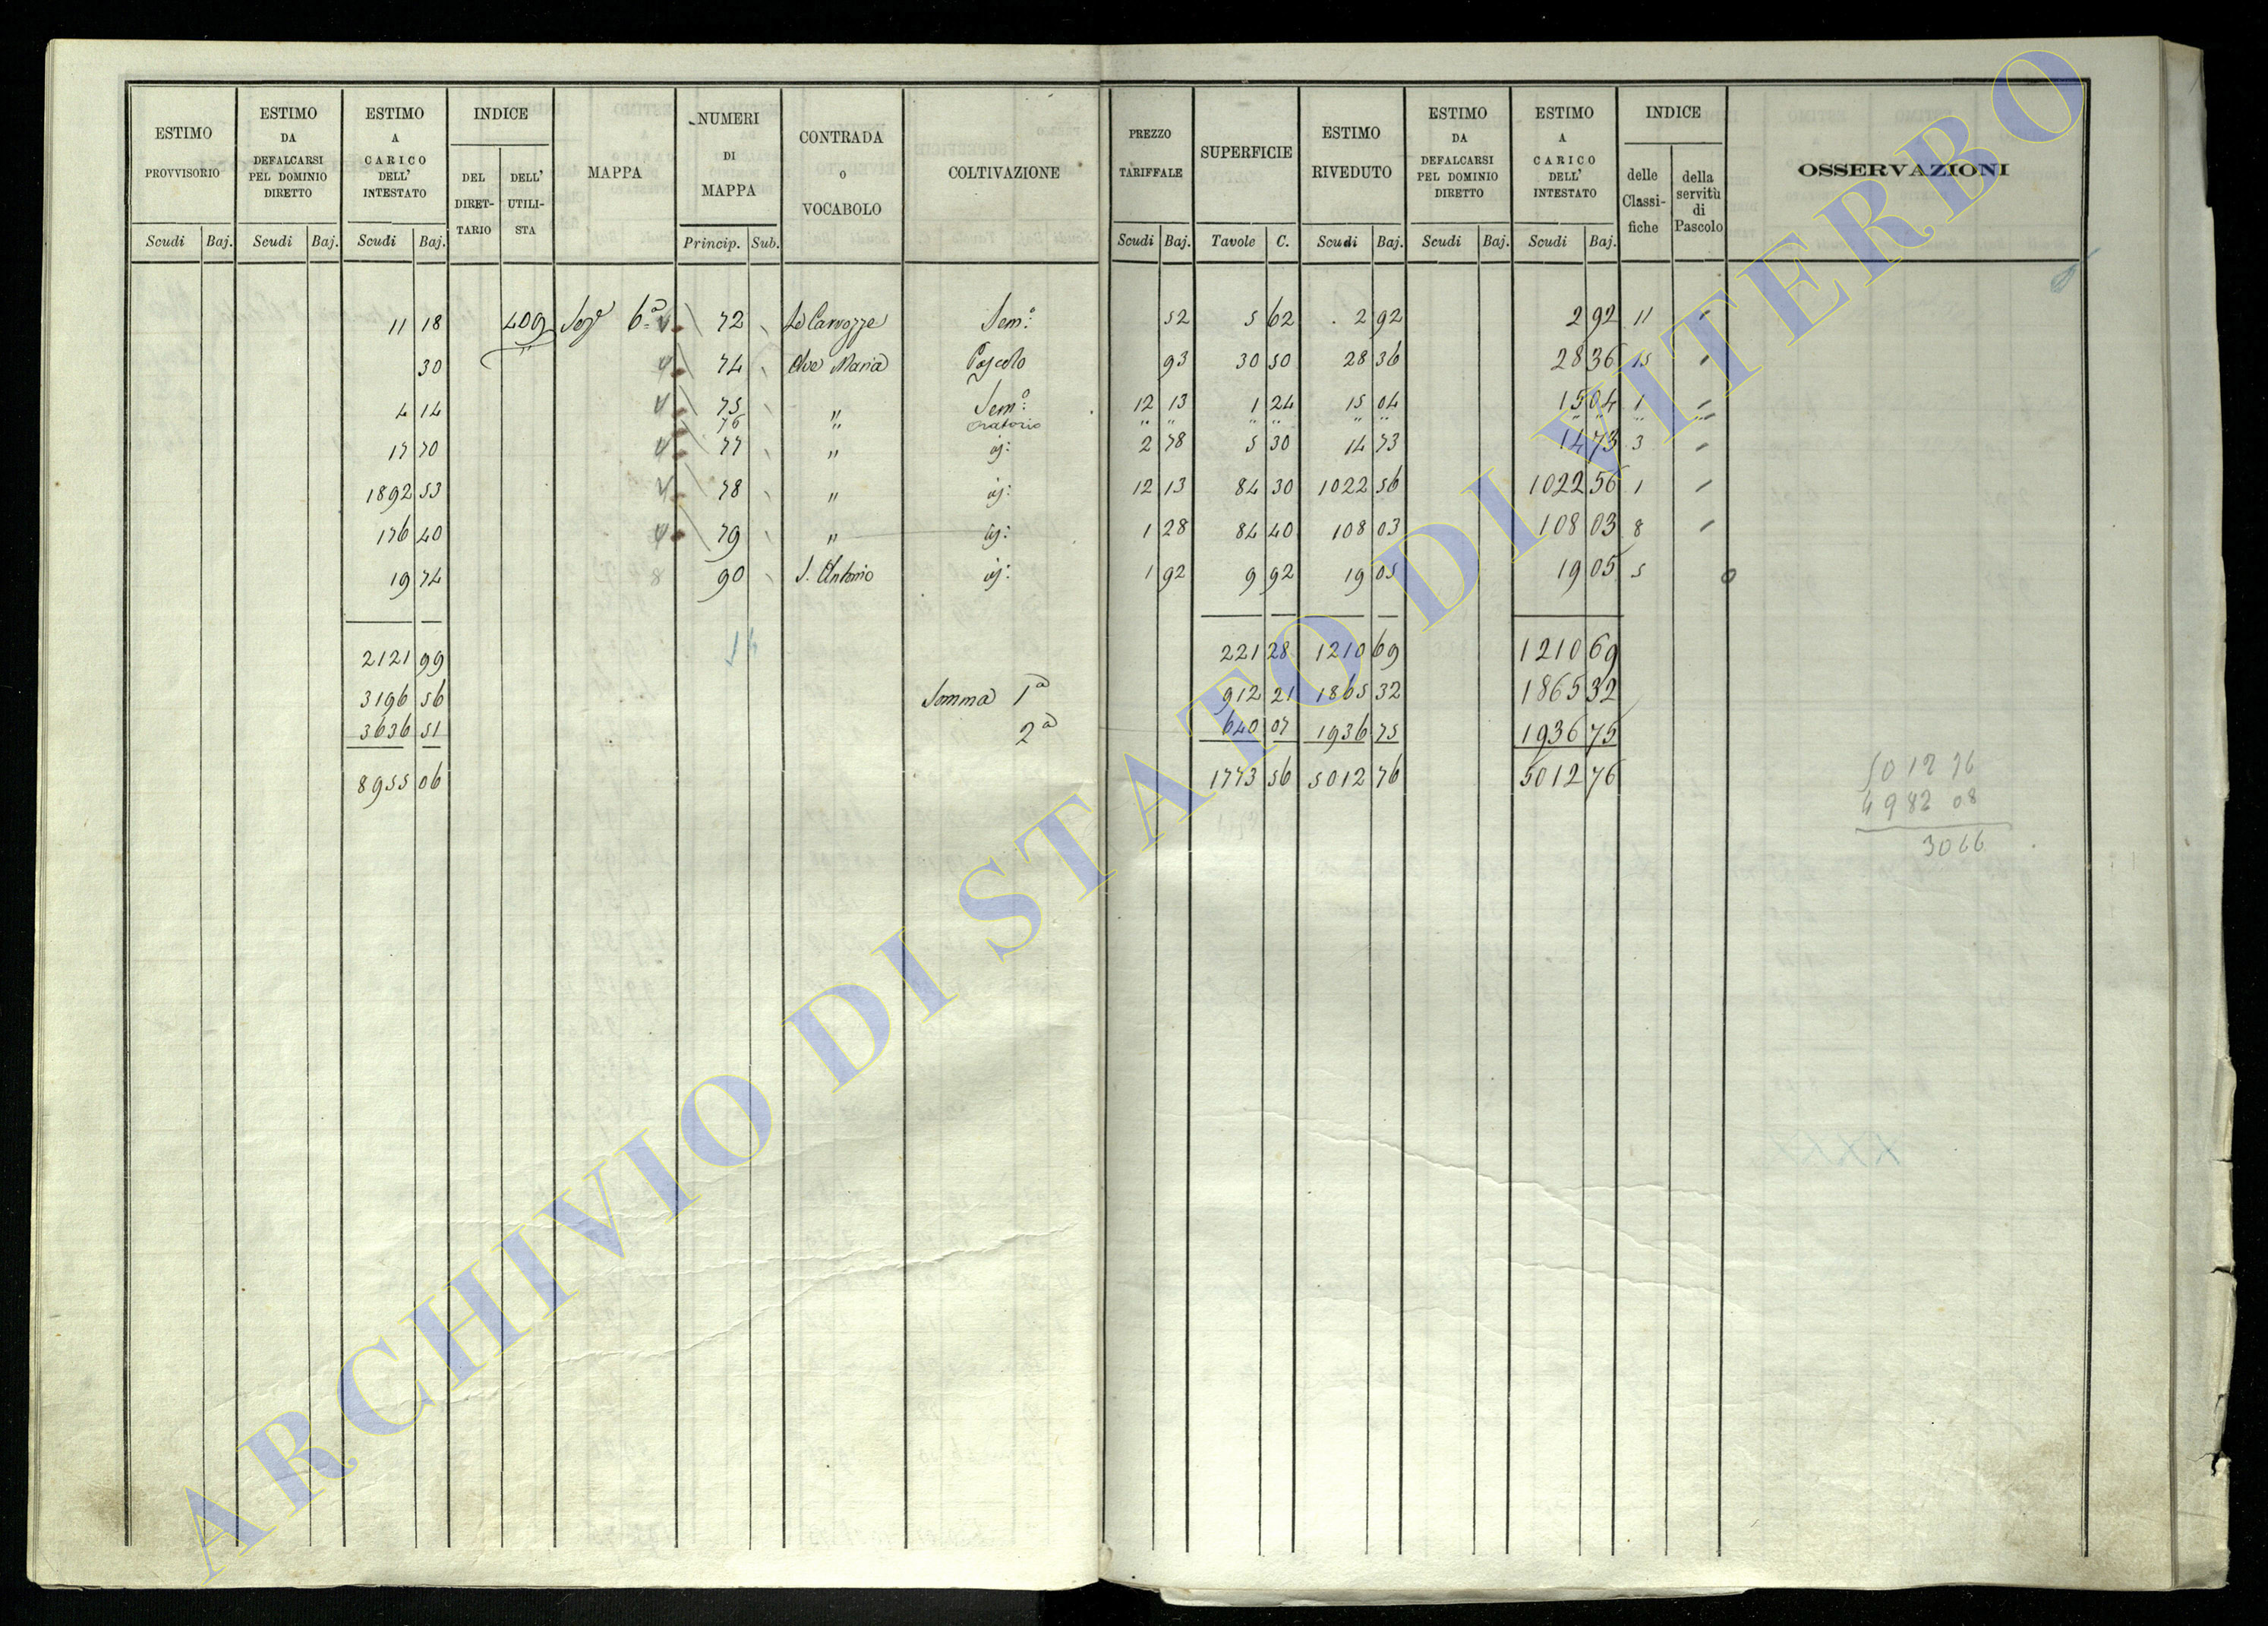 ESTIMO PROVVISORIO
ESTIMO DA DEFALCARSI PEL DOMINIO DIRETTO
ESTIMO A CARICO DELL' INTESTATO
INDICE
DEL DIRET-TARIO
DELL' UTILI-STA
MAPPA
NUMERI DI MAPPA
CONTRADA O VOCABOLO
COLTIVAZIONE
PREZZO TARIFFALE
SUPERFICIE
ESTIMO RIVEDUTO
ESTIMO DA DEFALCARSI PEL DOMINIO DIRETTO
ESTIMO A CARICO DELL' INTESTATO
INDICE
delle Classi-fiche
della servitù di Pascolo
OSSERVAZIONI
Scudi Baj. Scudi Baj. Scudi Baj. Princip. Sub. Scudi Baj. Tavole C. Scudi Baj. Scudi Baj. Scudi Baj.
11 18 409 Sez.e 6.a 72 Le Carrozze Sem.o 52 5 62 2 92 2 92 11 "
30 74 Ave Maria Pascolo 93 30 50 28 36 28 36 15 "
4 14 75 " Sem.o 12 13 1 24 15 04 15 04 1 "
76 " Oratorio " " " " " " " " " "
17 70 77 " Sj: 2 78 5 30 14 73 14 73 3 "
1892 53 78 " Sj: 12 13 84 30 1022 56 1022 56 1 "
176 40 79 " Sj: 1 28 84 40 108 03 108 03 8 "
19 74 8 90 S. Antonio Sj: 1 92 9 92 19 05 19 05 5
2121 99 221 28 1210 69 1210 69
3196 56 Somma 1a 912 21 1865 32 1865 32
3636 51 2a 640 07 1936 75 1936 75
8955 06 1773 56 5012 76 5012 76
5012 76
4982 08
3066
ARCHIVIO DI STATO DI VITERBO